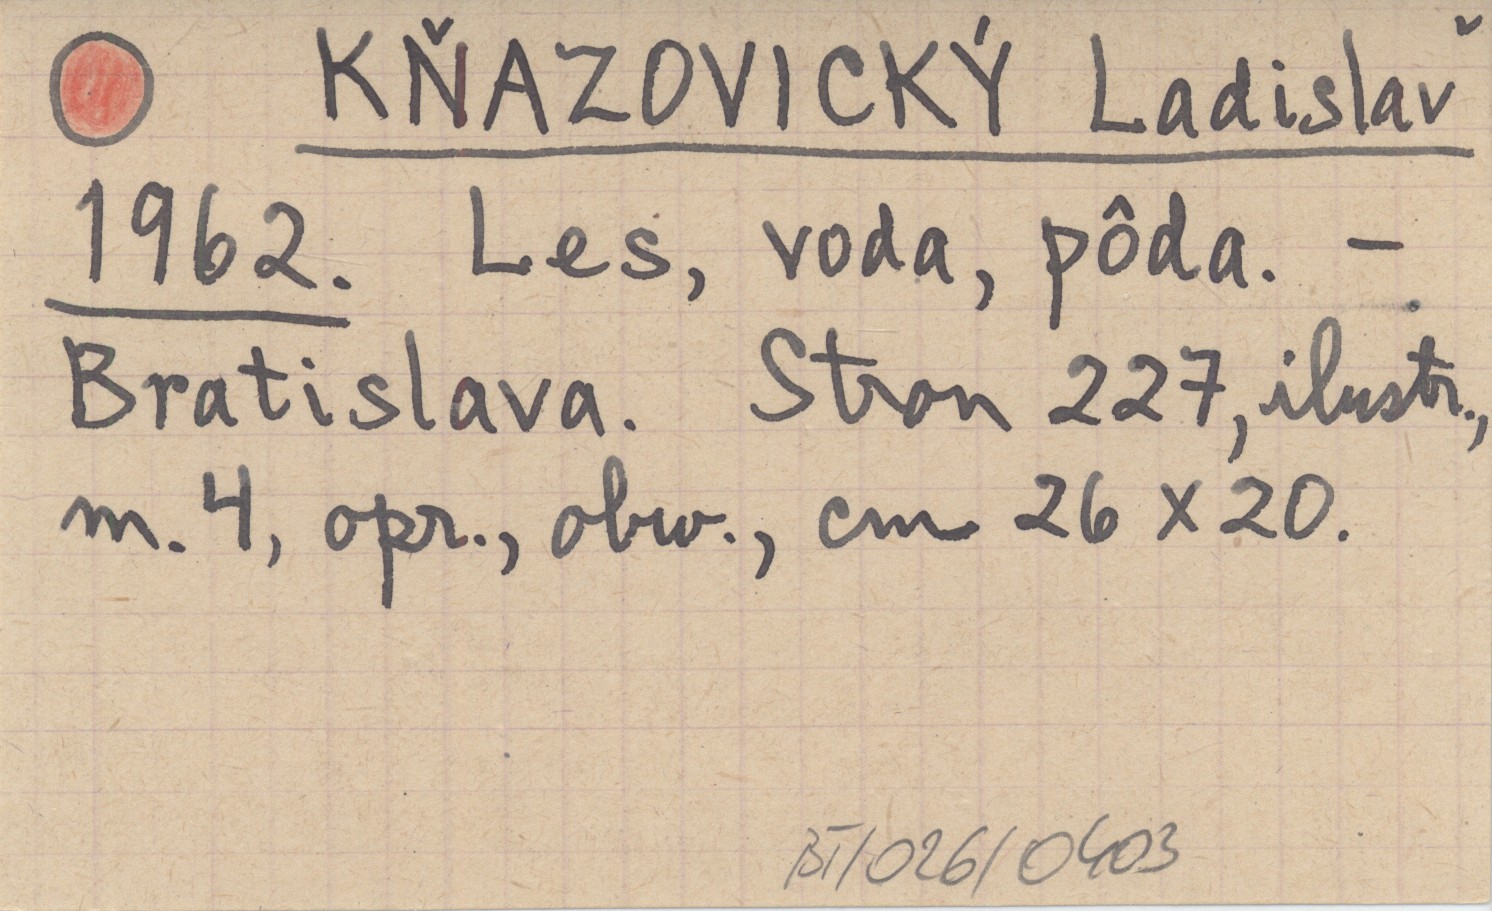 KŇAZOVICKÝ Ladislav̌
1962. Les, voda, pôda. -
Bratislava. Stron 227, ilustr.,
m. 4, opr., obw., cm 26 x 20.
BT/026/0403